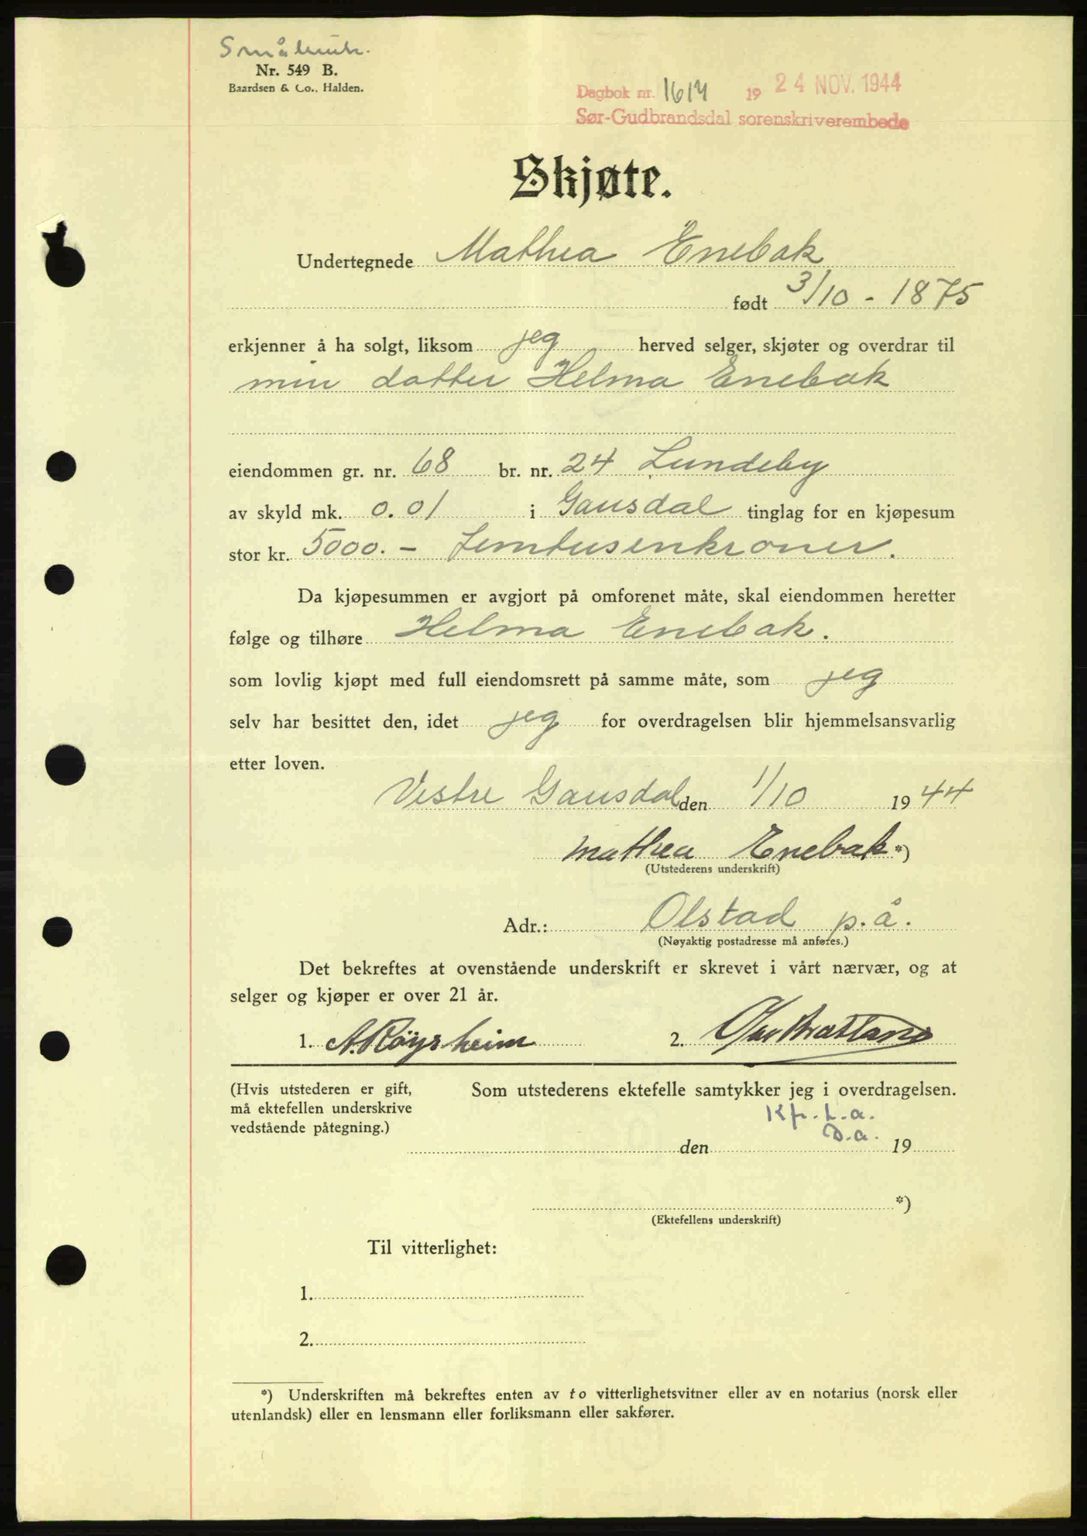 Småbruk.
Nr. 549 B.
Baardsen & Co., Halden.
Dagbok nr. 1614 19 24 NOV. 1944
Sør-Gudbrandsdal sorenskriverembede
Skjøte.
Undertegnede Mathea Enebak
født 3/10 - 1875
erkjenner å ha solgt, liksom jeg herved selger, skjøter og overdrar til
min datter Helma Enebak
eiendommen gr. nr. 68 br. nr. 24 Lundeby
av skyld mk. 0.01 i Gausdal tinglag for en kjøpesum
stor kr. 5000.- Femtusenkroner.
Da kjøpesummen er avgjort på omforenet måte, skal eiendommen heretter
følge og tilhøre Helma Enebak.
som lovlig kjøpt med full eiendomsrett på samme måte, som jeg
selv har besittet den, idet jeg for overdragelsen blir hjemmelsansvarlig
etter loven.
Vestre Gausdal den 1/10 1944
Mathea Enebak *)
(Utstederens underskrift)
Adr.: Olstad p.å.
(Nøyaktig postadresse må anføres.)
Det bekreftes at ovenstående underskrift er skrevet i vårt nærvær, og at
selger og kjøper er over 21 år.
1. A. Røysheim 2. Bratland
(Hvis utstederen er gift, Som utstederens ektefelle samtykker jeg i overdragelsen.
må ektefellen underskrive
vedstående påtegning.)
Kp. L.a.
D.a.
den 19
*)
(Ektefellens underskrift)
Til vitterlighet:
1.
2.
*) Underskriften må bekreftes enten av to vitterlighetsvitner eller av en notarius (norsk eller
utenlandsk) eller en lensmann eller forliksmann eller sakfører.